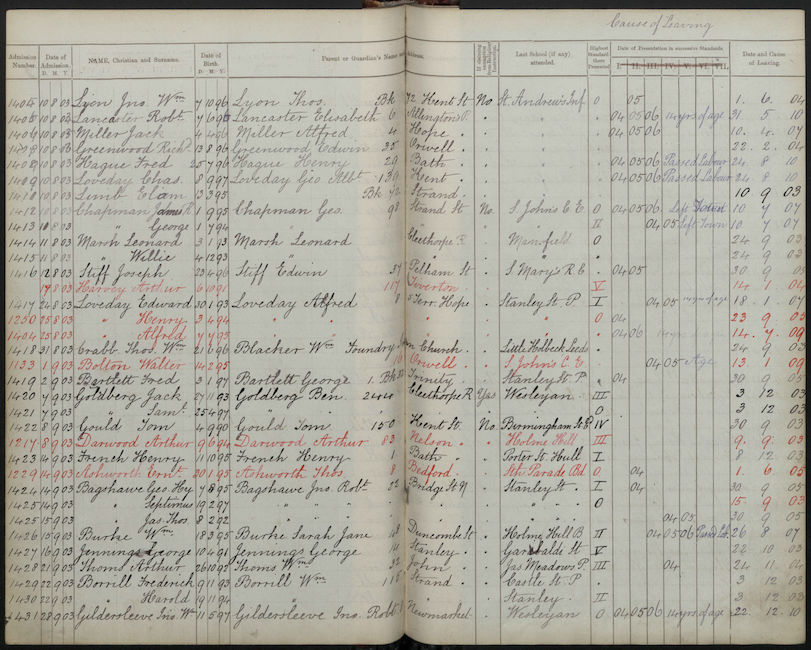 Cause of Leaving
Admission Number. Date of Admission. D. M. Y. NAME, Christian and Surname. Date of Birth. D. M. Y. Parent or Guardian's Name Address. Last School (if any) attended. Highest Standard there Presented Date of Presentation in successive Standards. I. II. III. IV. V. VI. VII. Date and Cause of Leaving.
1404 10 8 03 Lyon Jno. Wm 7 10 96 Lyon Thos. Bk 72 Kent St No St. Andrews Inf. 0 05 1. 6. 04
1405 10 8 03 Lancaster Robt. 7 6 96 Lancaster Elisabeth 6 04 05 06 14 yrs of age 31. 5 10
1406 10 8 03 Miller Jack 4 4 96 Miller Alfred 4 Hope . 04 05 06 10. 4. 07
10 8 03 Greenwood Richd. 13 8 94 Greenwood Edwin 35 Orwell . 22. 2. 04
1408 10 8 03 Hague Fred 25 7 96 Hague Henry 29 Bath . 04 05 06 Passed Labour 24 8 10
1409 10 8 03 Loveday Chas. 5 9 97 Loveday Geo. Albt. 139 Kent . 04 05 06 Passed Labour 24 8 10
1410 10 8 03 Limb Elam 13 3 95 Bk 72 Strand . 10 9 03
1412 10 8 03 Chapman James R 1 9 95 Chapman Geo. 98 Strand St No. S. Johns C.E. 0 04 05 06. Left Town 10 7 07
1413 10 8 03 " George 1 7 94 " II 04 05 Left Town 10 7 07
1414 11 8 03 Marsh Leonard 3 1 93 Marsh Leonard Cleethorpe R. Manfield 0 24 9 03
1415 11 8 03 " Willie 4 12 93 " 24 9 03
1416 12 8 03 Stiff Joseph 23 4 96 Stiff Edwin 37 Pelham St . S. Mary's R.E. . 04 05 30 9 05
17 8 03 Harvey Arthur 6 10 91 117 Tiverton . V 14. 1 04
1417 24 8 03 Loveday Edward 30 1 93 Loveday Alfred 8 Terr. Hope . Stanley St. P. I 04 05 18. 1. 07
1250 25 8 03 " Henry 3 4 94 0 04 23 9 05
1404 25 8 03 " Alfred 7 7 95 04 06 14. 7. 09
1418 31 8 03 Crabb Thos. Wm 21 6 96 Blacher Wm Foundry Church . Little Holbeck Leeds . 24 9 03
133 1 9 03 Bolton Walter 14 2 95 16 Orwell . S. Johns C.E. 04 05 Age 13. 1 09
1419 2 9 03 Bartlett Fred 3 1 97 Bartlett George 1. Bk Trinity . Stanley St P. . 04 30 9 05
1420 7 9 03 Goldberg Jack 27 11 93 Goldberg Ben. 244 Cleethorpe R Yes Wesleyan III 3 12 03
1421 7 9 03 " Saml. 25 4 97 " 0 3 12 03
1422 8 9 03 Gould Tom 4 9 90 Gould Tom 150 Kent St. No. Birmingham St B IV 30 9 03
1217 8 9 03 Darwood Arthur 9 6 94 Darwood Arthur 83 Nelson . Holme Hill III 9. 9. 03
1423 14 9 03 French Henry 11 0 95 French Henry 1 Bath . Porter St. Hull I 8 12 03
1229 14 9 03 Ashworth Ernt. 30 1 95 Ashworth Thos. 8 Bedford . Sth Parade Bd. 0 04 1. 6 05
1424 14 9 03 Bagshawe Geo. Hy 7 8 95 Bagshawe Jno. Robt. 22 Bridge St N . Stanley St . I 04 30 9 05
1425 14 9 03 " Septimus 19 2 97 0 15 9 03
1425 15 9 03 " Jas. Thos. 8 2 92 04 05 30 9 05
1426 15 9 03 Burke Wm. 18 3 95 Burke Sarah Jane 48 Duncombe St . Holme Hill B II 04 05 06 Passed Lab. 26 8 07
1427 16 9 03 Jennings George 10 4 91 Jennings George 14 Stanley . Garibaldi St V 22 10 03
1428 21 9 03 Thoms Arthur 26 10 95 Thoms Wm 32 John . Jas Meadows P. III 04 24. 11 04
1429 22 9 03 Borrill Frederick 9 11 93 Borrill Wm 115 Strand . Castle St. P . 3 12 03
1430 22 9 03 " Harold 19 11 94 " Stanley . II 3 12 03
1431 28 9 03 Gildersleeve Jno. Wm 11 5 97 Gildersleeve Jno. Robt. Newmarket . Wesleyan 0 04 05 06 14 yrs of age 22. 12. 10